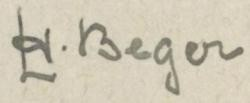 H. Beger